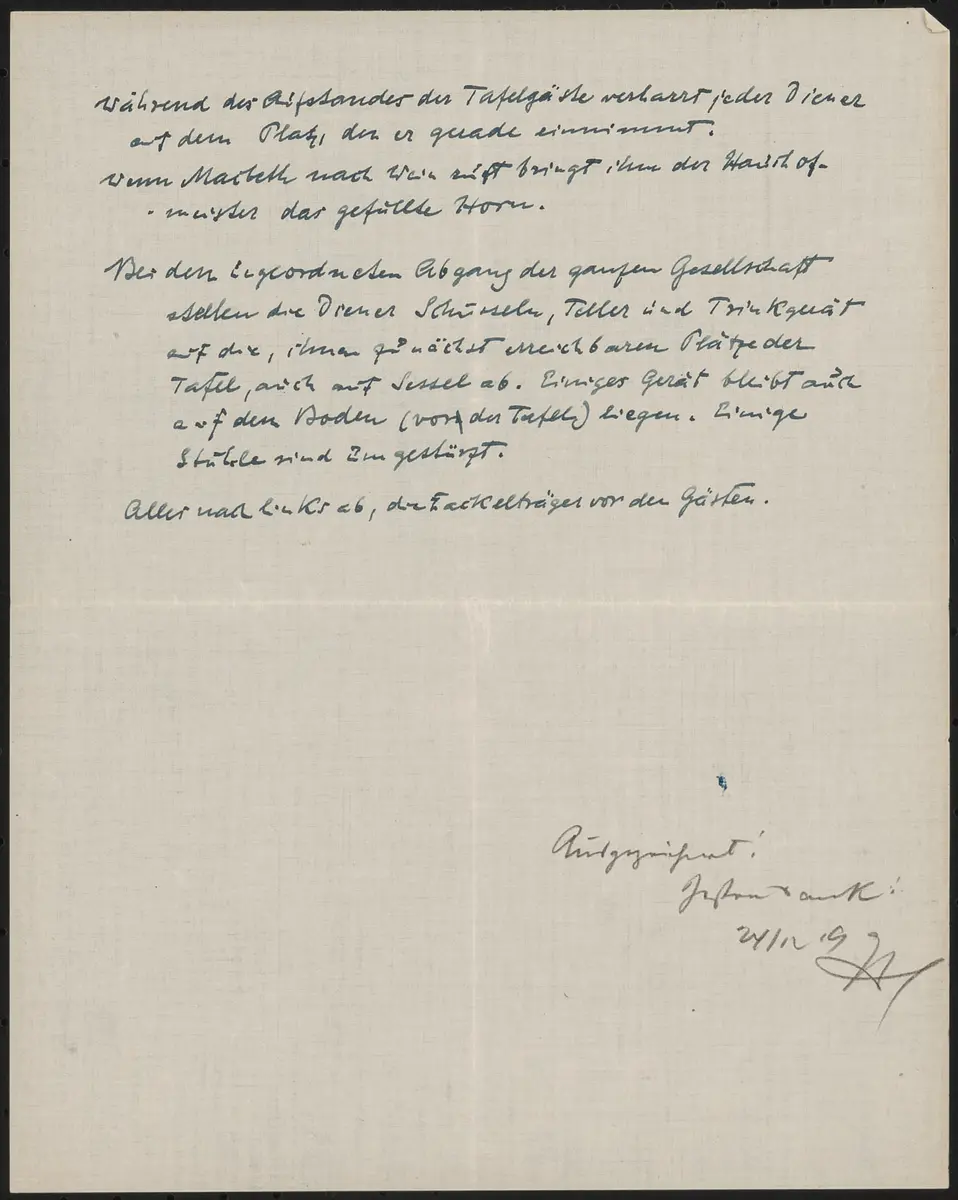 während des Aufstandes der Tafelgäste verharrt jeder Diener
auf dem Platz, den er gerade einnimmt.
wenn Macbeth nach Wein ruft bringt ihm der Haushof-
meister das gefüllte Horn.
Bei dem ungeordneten Abgang der ganzen Gesellschaft
stellen die Diener Schüsseln, Teller und Trinkgerät
auf die, ihnen zunächst erreichbaren Plätze der
Tafel, auch auf Sessel ab. Einiges Gerät bleibt auch
auf dem Boden (vor der Tafel) liegen. Einige
Stühle sind umgestürzt.
Alles nach links ab, die Fackelträger vor den Gästen.
Ausgezeichnet!
Besten Dank!
24/12 19